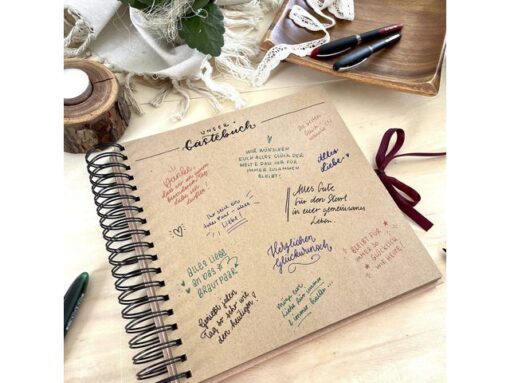 UNSER
Gästebuch
Danke,
dass wir an eurem
besonderen Tag
dabei sein
durften!
WIR WÜNSCHEN
EUCH ALLES GLÜCK DER
WELT & DAS IHR FÜR
IMMER ZUSAMMEN
BLEIBT!
Alles
Liebe
Ihr seid ein
Liebe!
Alles Gute
für den Start
in euer gemeinsames
Leben.
ALLES LIEBE
AN DAS
BRAUTPAAR
Herzlichen
Glückwunsch
BLEIBT FÜR
IMMER SO
GLÜCKLICH
WIE HEUTE
Genießt jeden
Tag so sehr wie
den heutigen!
Liebe für immer
& immer halten...